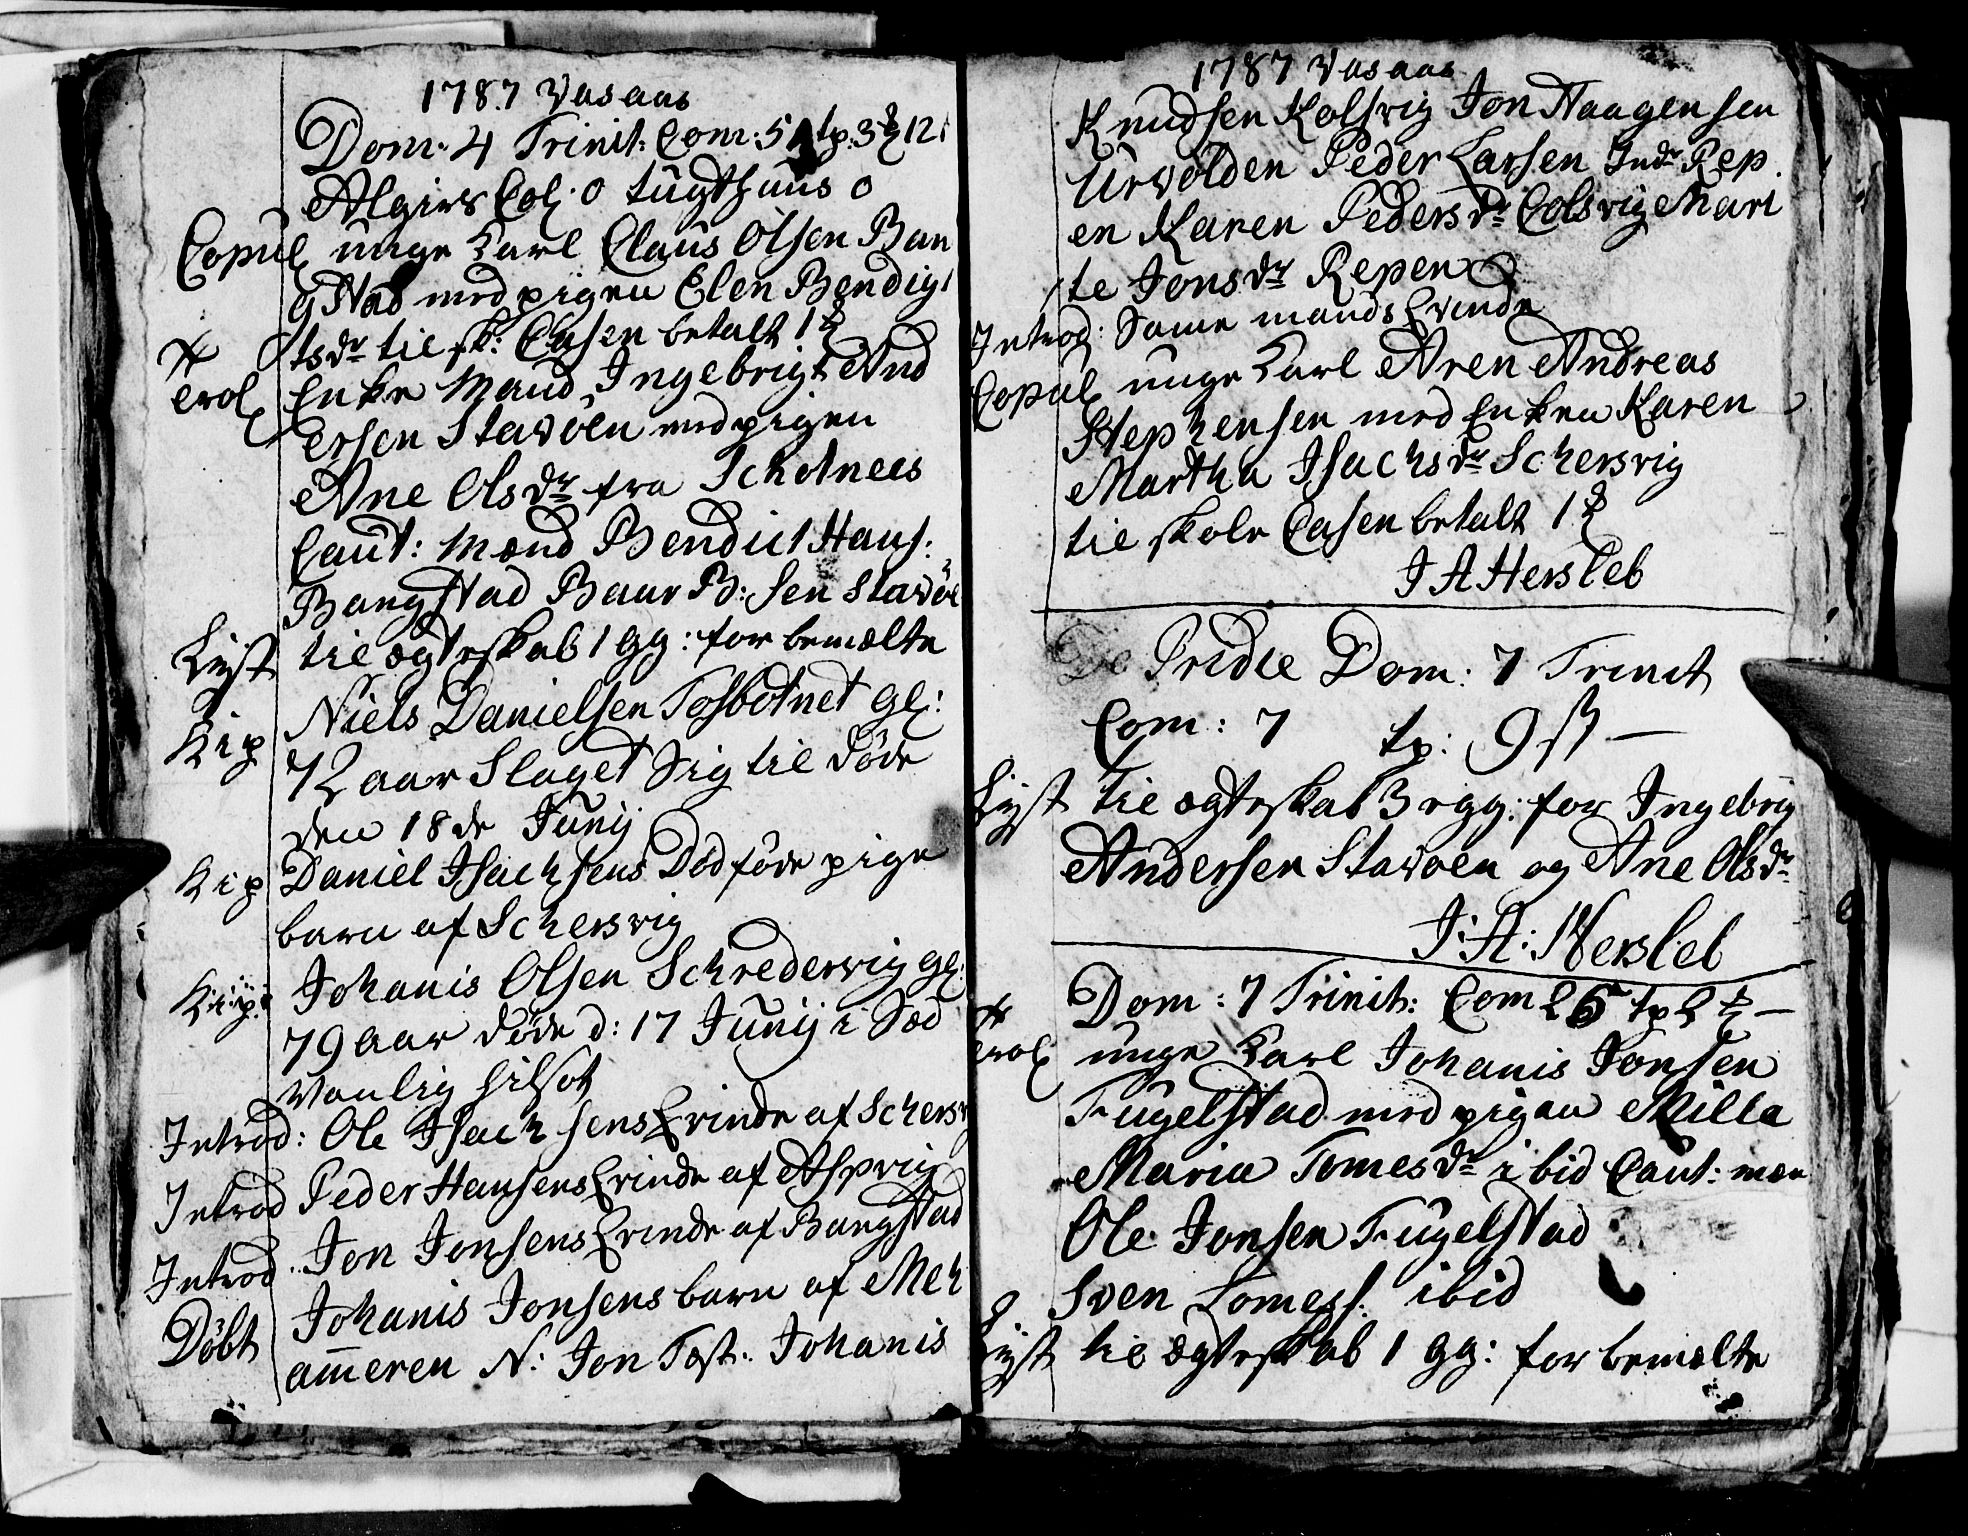 1787 Vasaas
Dom. 4 Trinit: Com: 5 tp. 3
Algirs Col. 0 tugthuus 0
Copul unge Karl Claus Olsen Ban
gstad med pigen Elen Bendigt
tsdr til sk: Casen betalt 1
Trol Enke Mand Ingebrigt And
ersen Stavöen med pigen
Ane Olsdr fra Schotnees
Caut: Mænd Bendict Hans:
Bangstad Baar B:sen Stavöe
Lyst til ægteskab 1 gg: for bemælte
Kip Niels Danielsen Tosbotnet gl:
72 aar Slaget Sig til döde
den 18de Junij
Kip Daniel Isachsens Dödföde pige
barn af Schersvig
Kiip: Johanis Olsen Schredervig gl:
79 aar döde d: 17 Junij i Sæd
vanlig hilsot
Introd: Ole Isachsens Qvinde af Schersv
Introd Peder Hansens Qvinde af Aspvig
Introd Jon Jonsens Qvinde af Bangstad
Döbt Johanis Jonsens barn af Meh
ammeren N: Jon Test: Johanis
1787 Vasaas
Knudsen Kolsvig Jon Haagensen
Urvolden Peder Larsen Indr Rep
en Karen Pedersdr Colsvig Mari
te Jonsdr Repen
Introd: Same mands Qvinde
Copul unge Karl Aren Andreas
Stephensen med Enken Karen
Martha Isachsdr Schersvig
til skole Casen betalt 1
J A Hersleb
Pridie Dom: 7 Trinit
Com: 7 tp: 9 ß —
Lyst til ægteskab 3 gg: for Ingebrig
Andersen Stavoen og Ane Olsdr
J: A: Hersleb
Dom: 7 Trinit: Com 26 tp 2
Trol unge Karl Johanis Jonsen
Fugelstad med pigen Milla
Maria Tomesdr ibid Caut: mæn
Ole Jonsen Fugelstad
Sven Tomess: ibid
Lyst til ægteskab 1 gg: for bemælte